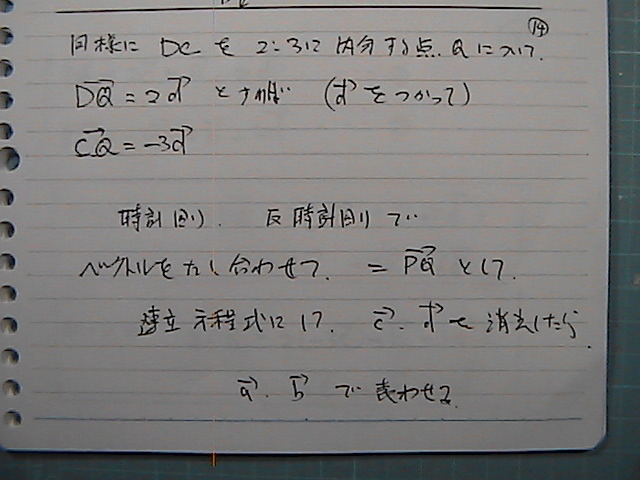 ⑭
同様に DCを2:3に内分する点Qについて.
$\overrightarrow{DQ} = 2\vec{d}$ とすれば ($\vec{d}$ をつかって)
$\overrightarrow{CQ} = -3\vec{d}$
時計回り. 反時計回りで
ベクトルをたし合わせて. = $\overrightarrow{PQ}$ として.
連立方程式にして. $\vec{c}$. $\vec{d}$ を消去したら.
$\vec{a}$. $\vec{b}$ で表わせる